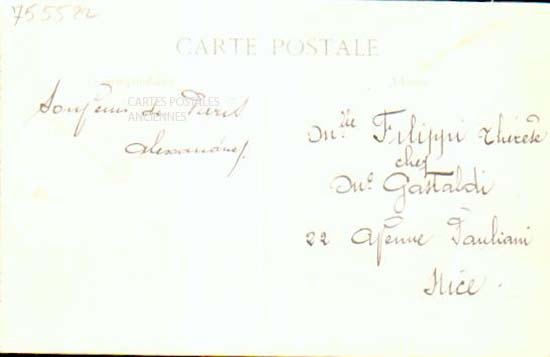 755522
CARTE POSTALE
Correspondance
Adresse
CARTES POSTALES
ANCIENNES
Souvenir de Paris
Mlle Filippi Thérèse
chez
Me Gastaldi
22 Avenue Pauliani
Nice.